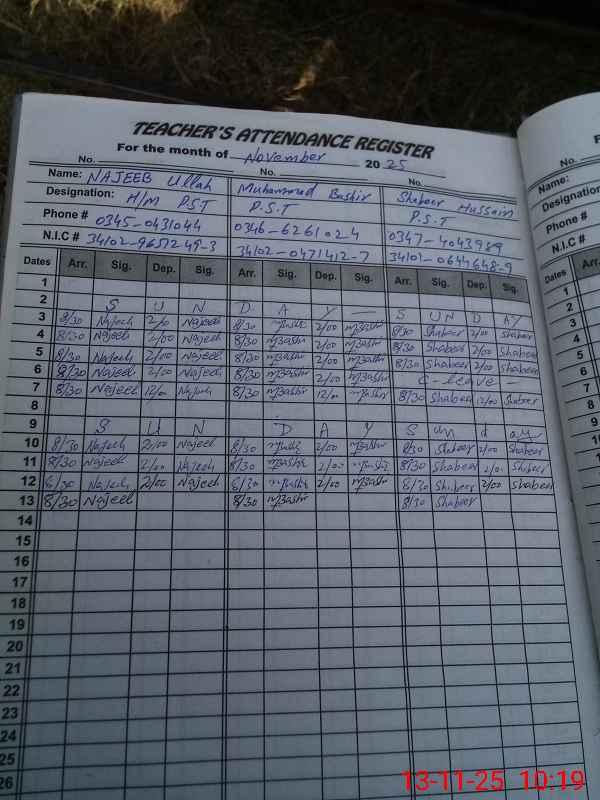 TEACHER'S ATTENDANCE REGISTER
For the month of November 2025
No. No. No.
Name: NAJEEB Ullah Muhammad Bashir Shabeer Hussain
Designation: H/M P.S.T P.S.T P.S.T
Phone # 0345-0431044 0346-6261024 0347-4043989
N.I.C # 34102-9657249-3 34102-0471412-7 34101-0644648-9
Dates Arr. Sig. Dep. Sig. Arr. Sig. Dep. Sig. Arr. Sig. Dep. Sig.
1
2 S U N D A Y — S UN D AY
3 8/30 Najeeb 2/00 Najeeb 8/30 mBashir 2/00 mBashir 8/30 Shabeer 2/00 Shabeer
4 8/30 Najeeb 2/00 Najeeb 8/30 mBashir 2/00 mBashir 8/30 Shabeer 2/00 Shabeer
5 8/30 Najeeb 2/00 Najeeb 8/30 mBashir 2/00 mBashir 8/30 Shabeer 2/00 Shabeer
6 8/30 Najeeb 2/00 Najeeb 8/30 mBashir 2/00 mBashir C-leave
7 8/30 Najeeb 12/00 Najeeb 8/30 mBashir 12/00 mBashir 8/30 Shabeer 12/00 Shabeer
8
9 S U N D A Y S un d ay
10 8/30 Najeeb 2/00 Najeeb 8/30 mBashir 2/00 mBashir 8/30 Shabeer 2/00 Shabeer
11 8/30 Najeeb 2/00 Najeeb 8/30 mBashir 2/00 mBashir 8/30 Shabeer 2/00 Shabeer
12 8/30 Najeeb 2/00 Najeeb 8/30 mBashir 2/00 mBashir 8/30 Shabeer 2/00 Shabeer
13 8/30 Najeeb 8/30 mBashir 8/30 Shabeer
14
15
16
17
18
19
20
21
22
23
24
25
26
No.
Name:
Designation
Phone #
N.I.C #
Dates Arr.
1
2
3
4
5
6
7
8
9
10
11
12
13-11-25 10:19